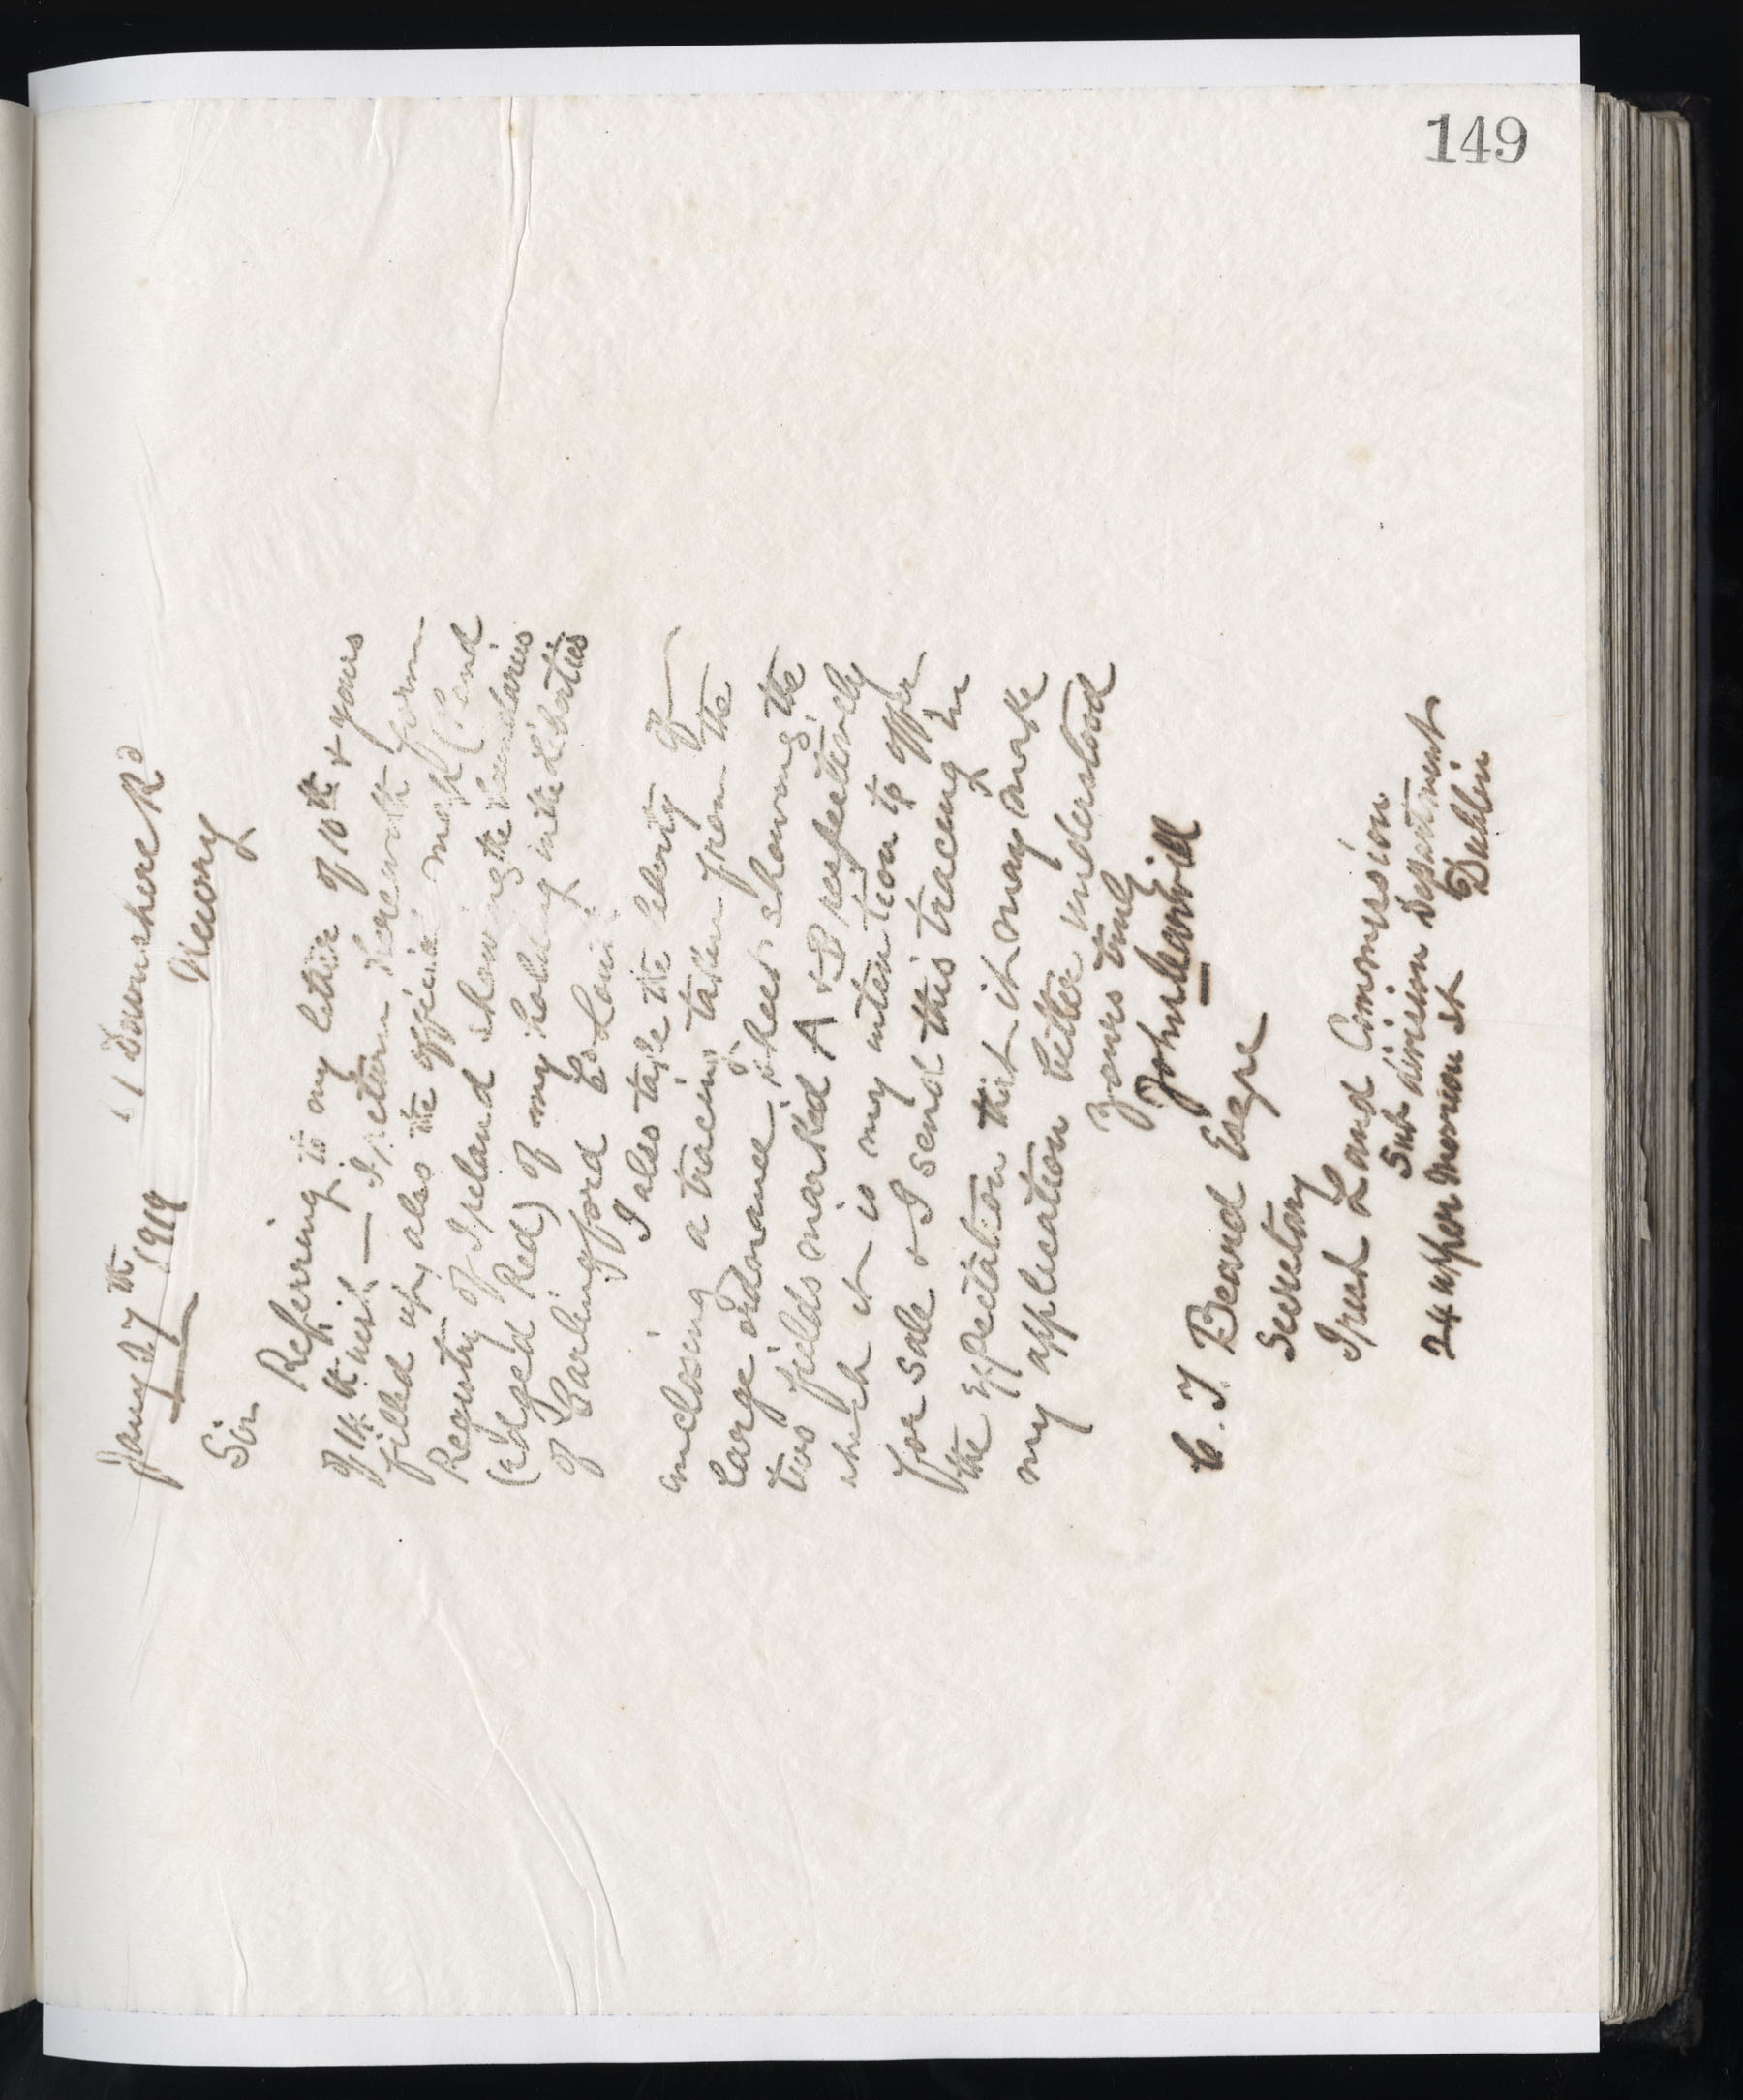 149
1 Downshire Rd
Newry
Jany 27th 1919
Sir
Referring to my letter of 10th & yours
of 14th inst — I return herewith form
filled up, also the official map (Land
Registry of Ireland showing the boundaries
(edged Red) of my holding in the Liberties
of Carlingford Co Louth
I also take the liberty of
enclosing a tracing taken from the
large ordnance sheet showing the
two fields marked A & B respectively
which it is my intention to offer
for sale & I send this tracing in
the expectation that it may make
my application better understood
Yours truly
John
C. T Beard Esqre
Secretary
Irish Land Commission
Sub division Department
24 upper Merrion St
Dublin